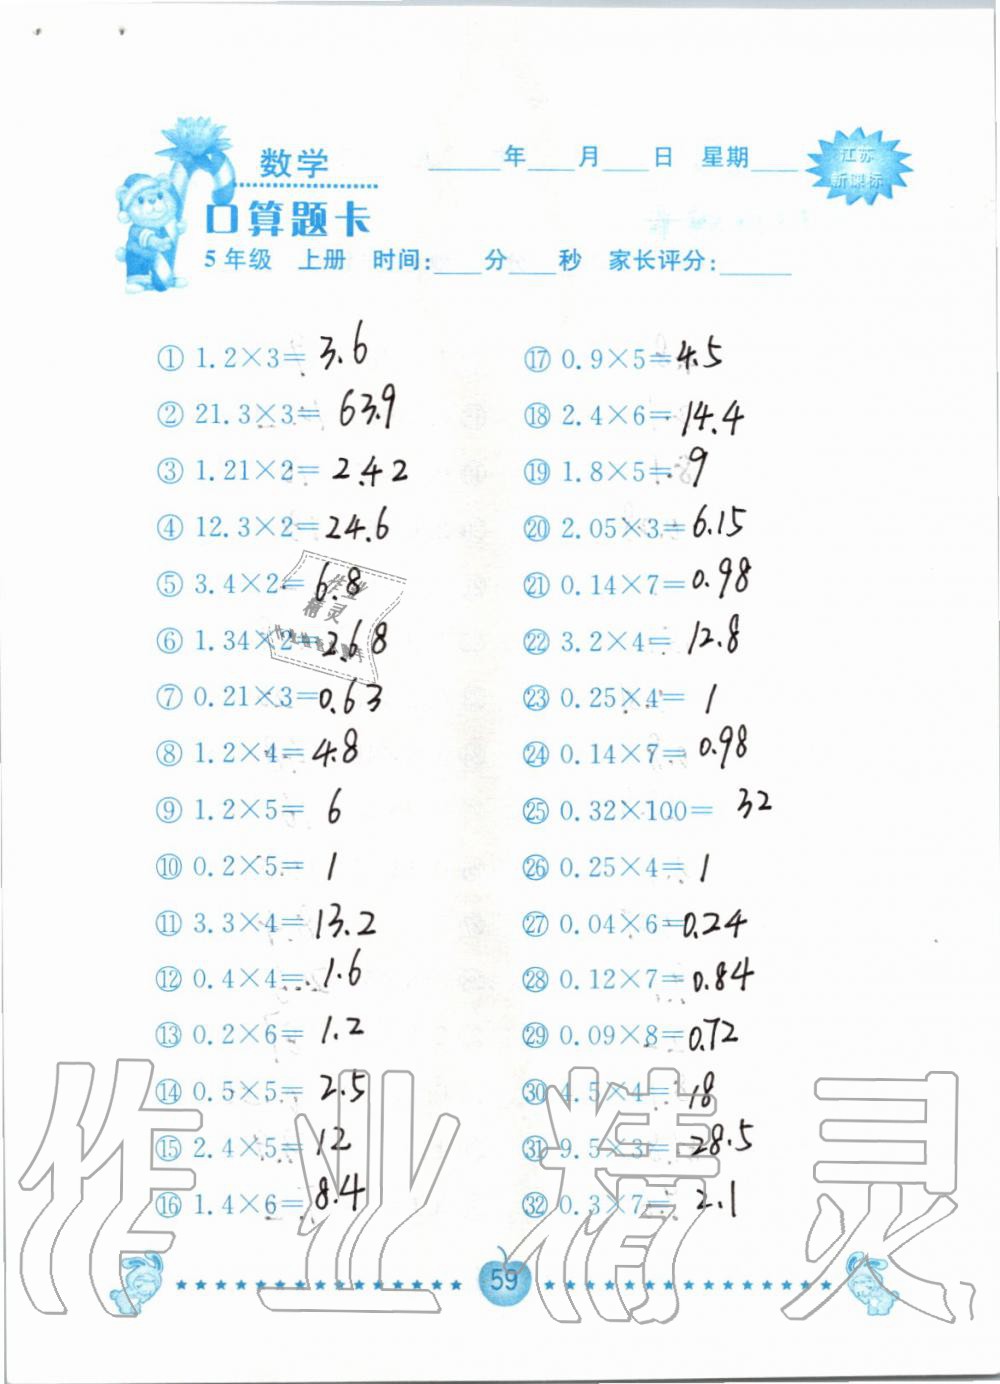 数学
____年____月____日 星期____
江苏
新课标
口算题卡
5年级 上册 时间:____分____秒 家长评分:______
① 1.2×3= 3.6
② 21.3×3= 63.9
③ 1.21×2= 2.42
④ 12.3×2= 24.6
⑤ 3.4×2= 6.8
⑥ 1.34×2= 2.68
⑦ 0.21×3= 0.63
⑧ 1.2×4= 4.8
⑨ 1.2×5= 6
⑩ 0.2×5= 1
⑪ 3.3×4= 13.2
⑫ 0.4×4= 1.6
⑬ 0.2×6= 1.2
⑭ 0.5×5= 2.5
⑮ 2.4×5= 12
⑯ 1.4×6= 8.4
⑰ 0.9×5= 4.5
⑱ 2.4×6= 14.4
⑲ 1.8×5= 9
⑳ 2.05×3= 6.15
㉑ 0.14×7= 0.98
㉒ 3.2×4= 12.8
㉓ 0.25×4= 1
㉔ 0.14×7= 0.98
㉕ 0.32×100= 32
㉖ 0.25×4= 1
㉗ 0.04×6= 0.24
㉘ 0.12×7= 0.84
㉙ 0.09×8= 0.72
㉚ 4.5×4= 18
㉛ 9.5×3= 28.5
㉜ 0.3×7= 2.1
作业
精灵
作业精灵
59